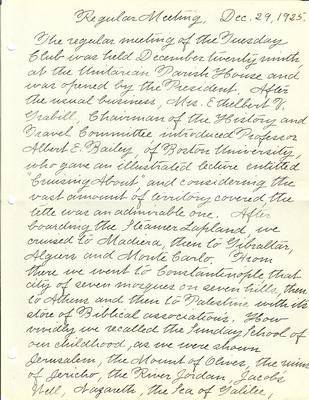 Regular Meeting, Dec. 29, 1925.
The regular meeting of the Tuesday
Club was held December twenty ninth,
at the Unitarian Parish House and
was opened by the President. After
the usual business, Mrs. Ethelbert V.
Grabill, Chairman of the History and
Travel Committee introduced Professor
Albert E. Bailey, of Boston University,
who gave an illustrated lecture entitled
"Cruising About", and considering the
vast amount of territory covered, the
title was an admirable one. After
boarding the Steamer Lapland, we
cruised to Madiera, then to Gibraltar,
Algiers and Monte Carlo. From
there we went to Constantinople that
city of seven mosques on seven hills, then
to Athens and then to Palestine with its
store of Biblical associations. How
vividly we recalled the Sunday School of
our childhood, as we were shown
Jerusalem, the Mount of Olives, the ruins
of Jericho, the River Jordan, Jacob's
Well, Nazareth, the Sea of Galilee,